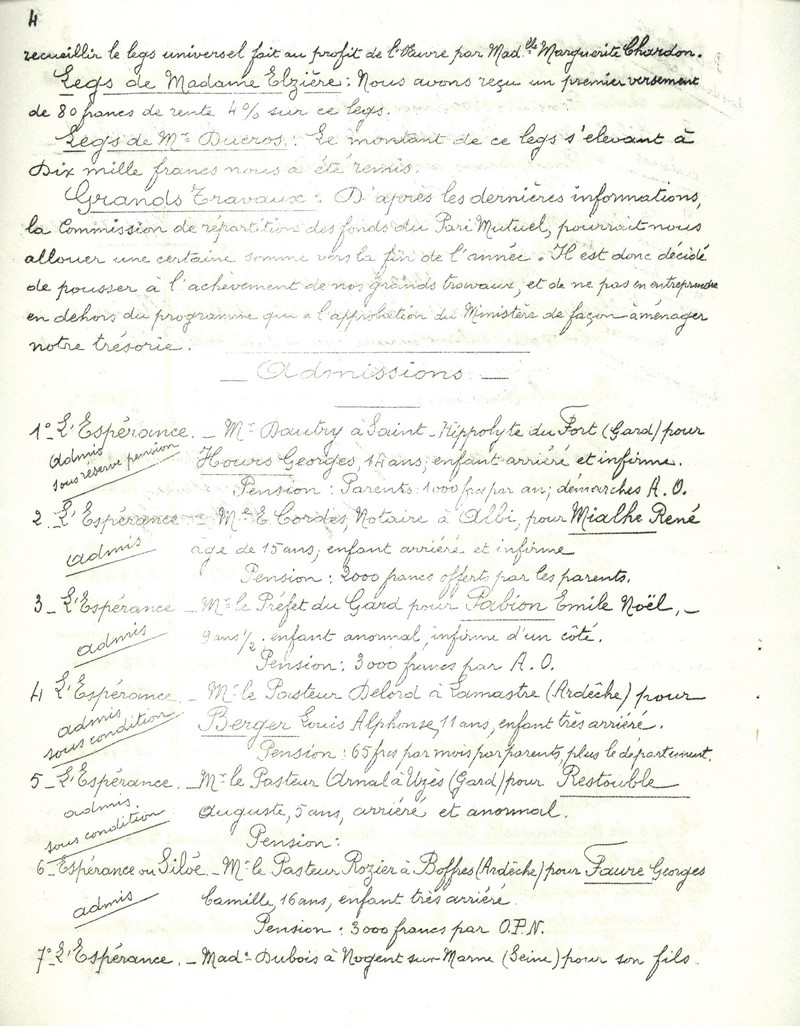 4
recueillir le legs universel fait au profit de l'Œuvre par Mad.lle Marguerite Chardon.
Legs de Madame Elzière : Nous avons reçu un premier versement
de 80 francs de rente 4% sur ce legs.
Legs de Mr Ducros : Le montant de ce legs s'élevant à
Dix mille francs nous a été remis.
Grands Travaux : D'après les dernières informations,
la Commission de répartition des fonds du Pari Mutuel, pourrait nous
allouer une certaine somme vers la fin de l'année. Il est donc décidé
de pousser à l'achèvement de nos grands travaux, et de ne pas en entreprendre
en dehors du programme qui a l'approbation du Ministère de façon à ménager
notre trésorie.
— Admissions. —
1° L'Espérance. — Mr Dautry à Saint-Hippolyte du Fort (Gard) pour
admis
sous réserve pension
Hours Georges, 14 ans, enfant arriéré et infirme.
Pension : Parents : 1000 frcs par an ; démarches A. O.
2. L'Espérance — Me E Cordes, Notaire à Albi, pour Mialhe René
admis
âgé de 15 ans, enfant arriéré et infirme
Pension : 2000 francs offerts par les parents.
3 — L'Espérance — Mr le Préfet du Gard pour Fabion Emile Noël, —
admis
9 ans ½ ; enfant anormal, infirme d'un côté.
Pension : 3000 francs par A. O.
4 L'Espérance. — Mr le Pasteur Delord à Lamastre (Ardèche) pour
admis
sous condition
Berger Louis Alphonse, 11 ans, enfant très arriéré.
Pension : 65 frcs par mois par parents, plus le département.
5 — L'Espérance. — Mr le Pasteur Arnal à Uzès (Gard) pour Restouble
admis.
sous condition
Auguste, 5 ans, arriéré et anormal.
Pension :
6 — Espérance ou Siloé. — Mr le Pasteur Rozier à Boffres (Ardèche) pour Faure Georges
admis
Camille, 16 ans, enfant très arriéré.
Pension : 3000 francs par O.P.N.
7° L'Espérance. — Made Dubois à Nogent sur Marne (Seine) pour son fils